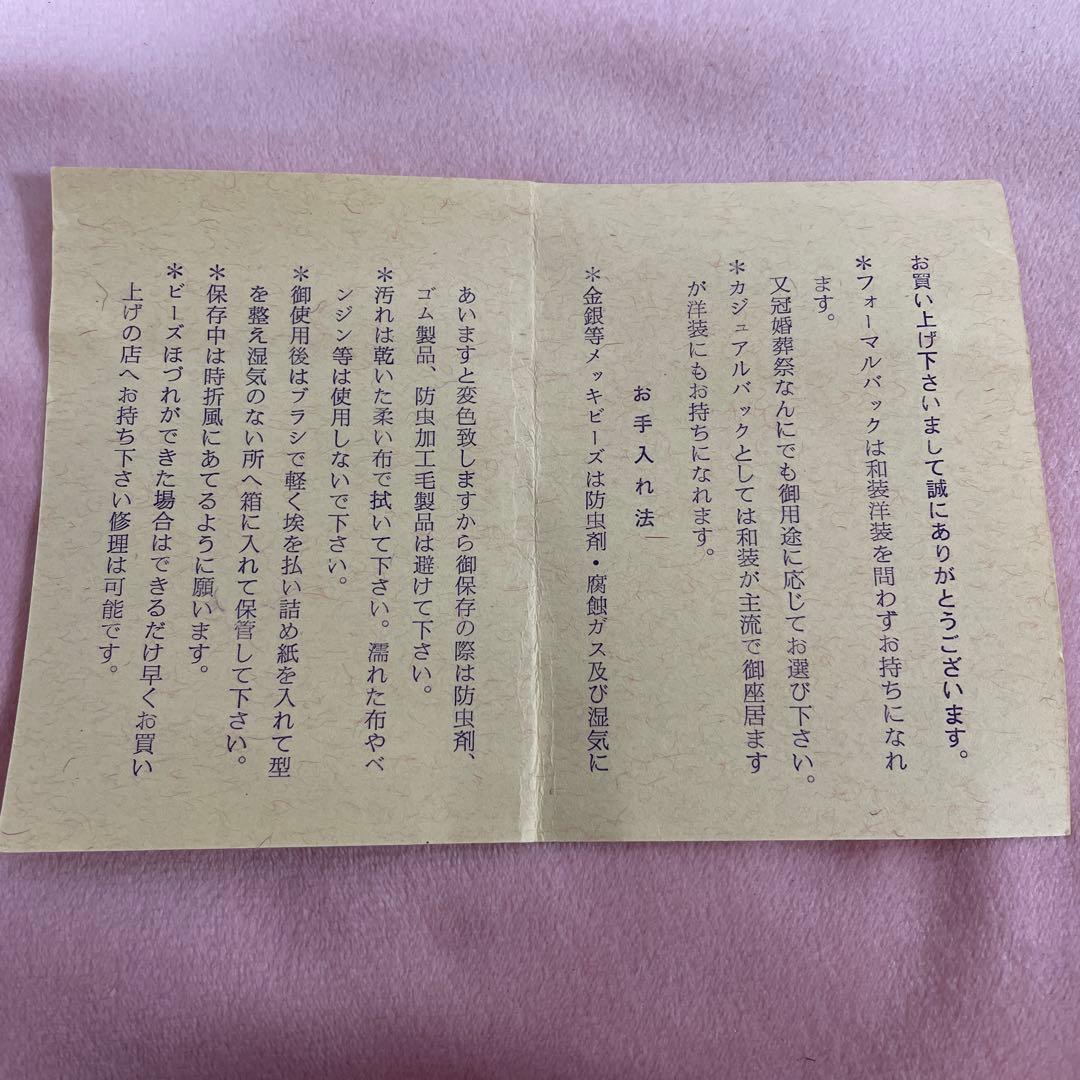 お買い上げ下さいまして誠にありがとうございます。
＊フォーマルバックは和装洋装を問わずお持ちになれ
ます。
又冠婚葬祭なんにでも御用途に応じてお選び下さい。
＊カジュアルバックとしては和装が主流で御座居ます
が洋装にもお持ちになれます。
お手入れ法
＊金銀等メッキビーズは防虫剤・腐蝕ガス及び湿気に
あいますと変色致しますから御保存の際は防虫剤、
ゴム製品、防虫加工毛製品は避けて下さい。
＊汚れは乾いた柔い布で拭いて下さい。濡れた布やベ
ンジン等は使用しないで下さい。
＊御使用後はブラシで軽く埃を払い詰め紙を入れて型
を整え湿気のない所へ箱に入れて保管して下さい。
＊保存中は時折風にあてるように願います。
＊ビーズほづれができた場合はできるだけ早くお買い
上げの店へお持ち下さい修理は可能です。